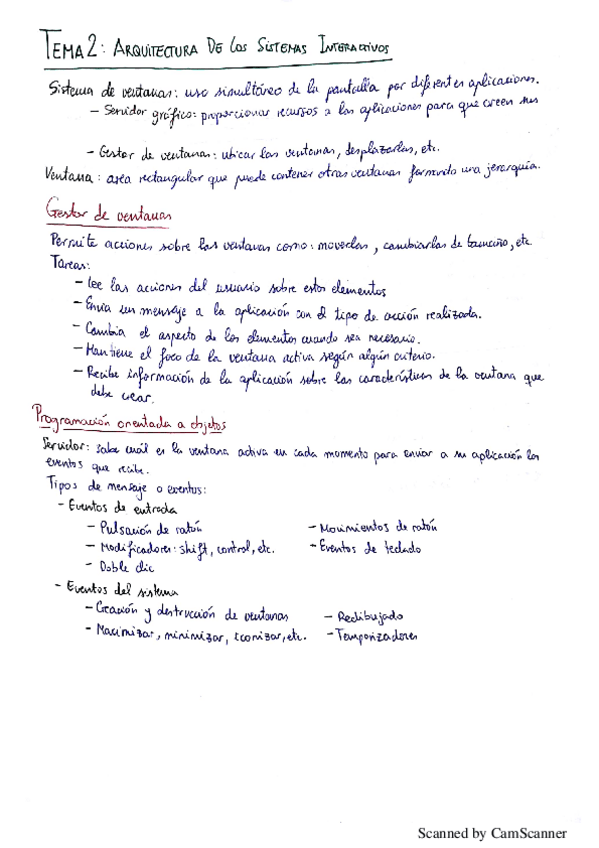 TEMA 2: ARQUITECTURA DE LOS SISTEMAS INTERACTIVOS
Sistema de ventanas: uso simultáneo de la pantalla por diferentes aplicaciones.
- Servidor gráfico: proporcionar recursos a las aplicaciones para que creen sus
- Gestor de ventanas: ubicar las ventanas, desplazarlas, etc.
Ventana: area rectangular que puede contener otras ventanas formando una jerarquía.
Gestor de ventanas
Permite acciones sobre las ventanas como: moverlas, cambiarlas de tamaño, etc
Tareas:
- Lee las acciones del usuario sobre estos elementos
- Envia un mensaje a la aplicación con el tipo de acción realizada.
- Cambia el aspecto de los elementos cuando sea necesario.
- Mantiene el foco de la ventana activa según algún criterio.
- Recibe información de la aplicación sobre las características de la ventana que
debe crear.
Programación orientada a objetos
Servidor: sabe cuál es la ventana activa en cada momento para enviar a su aplicación los
eventos que recibe.
Tipos de mensaje o eventos:
- Eventos de entrada
- Pulsación de ratón - Movimientos de ratón
- Modificadores: shift, control, etc. - Eventos de teclado
- Doble clic
- Eventos del sistema
- Creación y destrucción de ventanas - Redibujado
- Maximizar, minimizar, iconizar, etc. - Temporizadores
Scanned by CamScanner